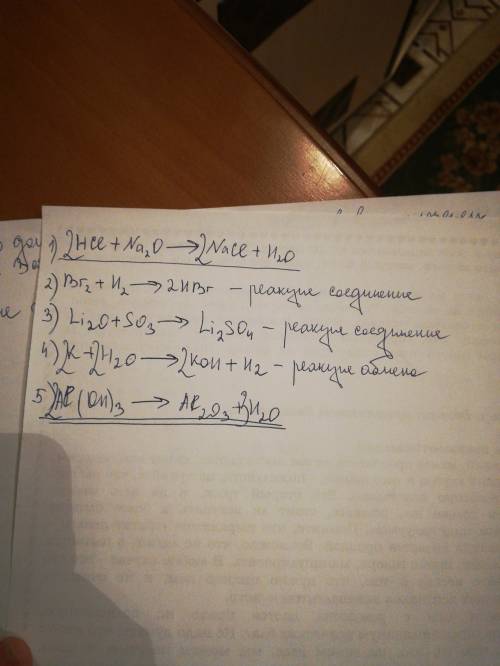 1) 2HCl + Na₂O → 2NaCl + H₂O
2) Br₂ + H₂ → 2HBr – реакция соединение
3) Li₂O + SO₃ → Li₂SO₄ – реакция соединение
4) 2K + 2H₂O → 2KOH + H₂ – реакция обмена
5) 2Al(OH)₃ → Al₂O₃ + 3H₂O